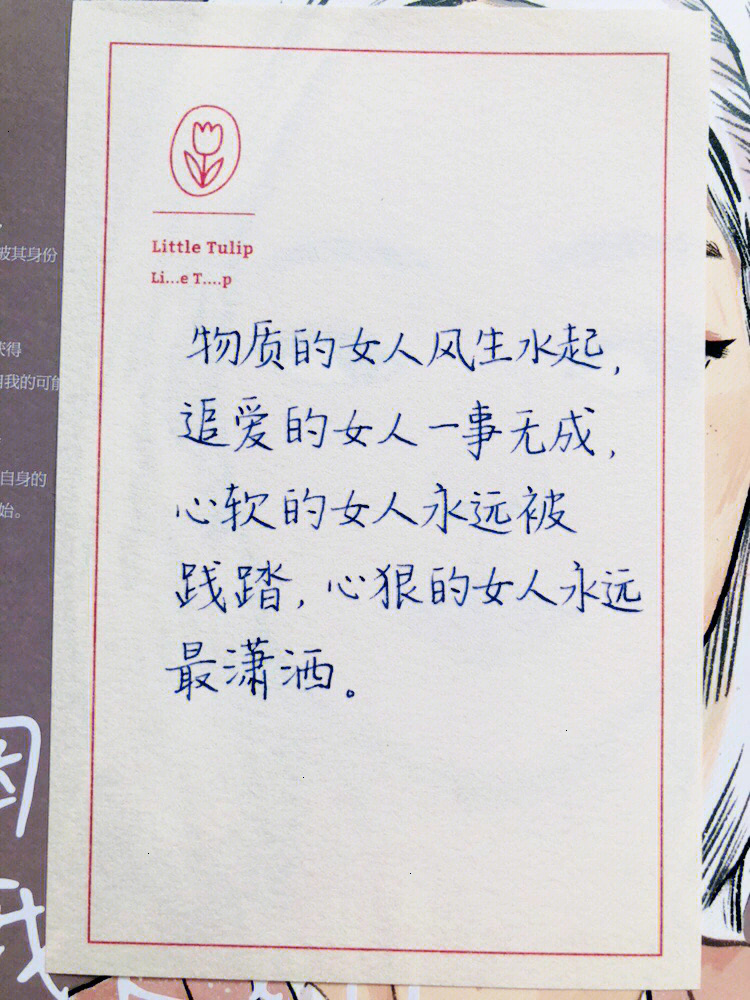 Little Tulip
Li...e T....p
物质的女人风生水起,
追爱的女人一事无成,
心软的女人永远被
践踏,心狠的女人永远
最潇洒。
被其身份
获得
我的可能
自身的
始。